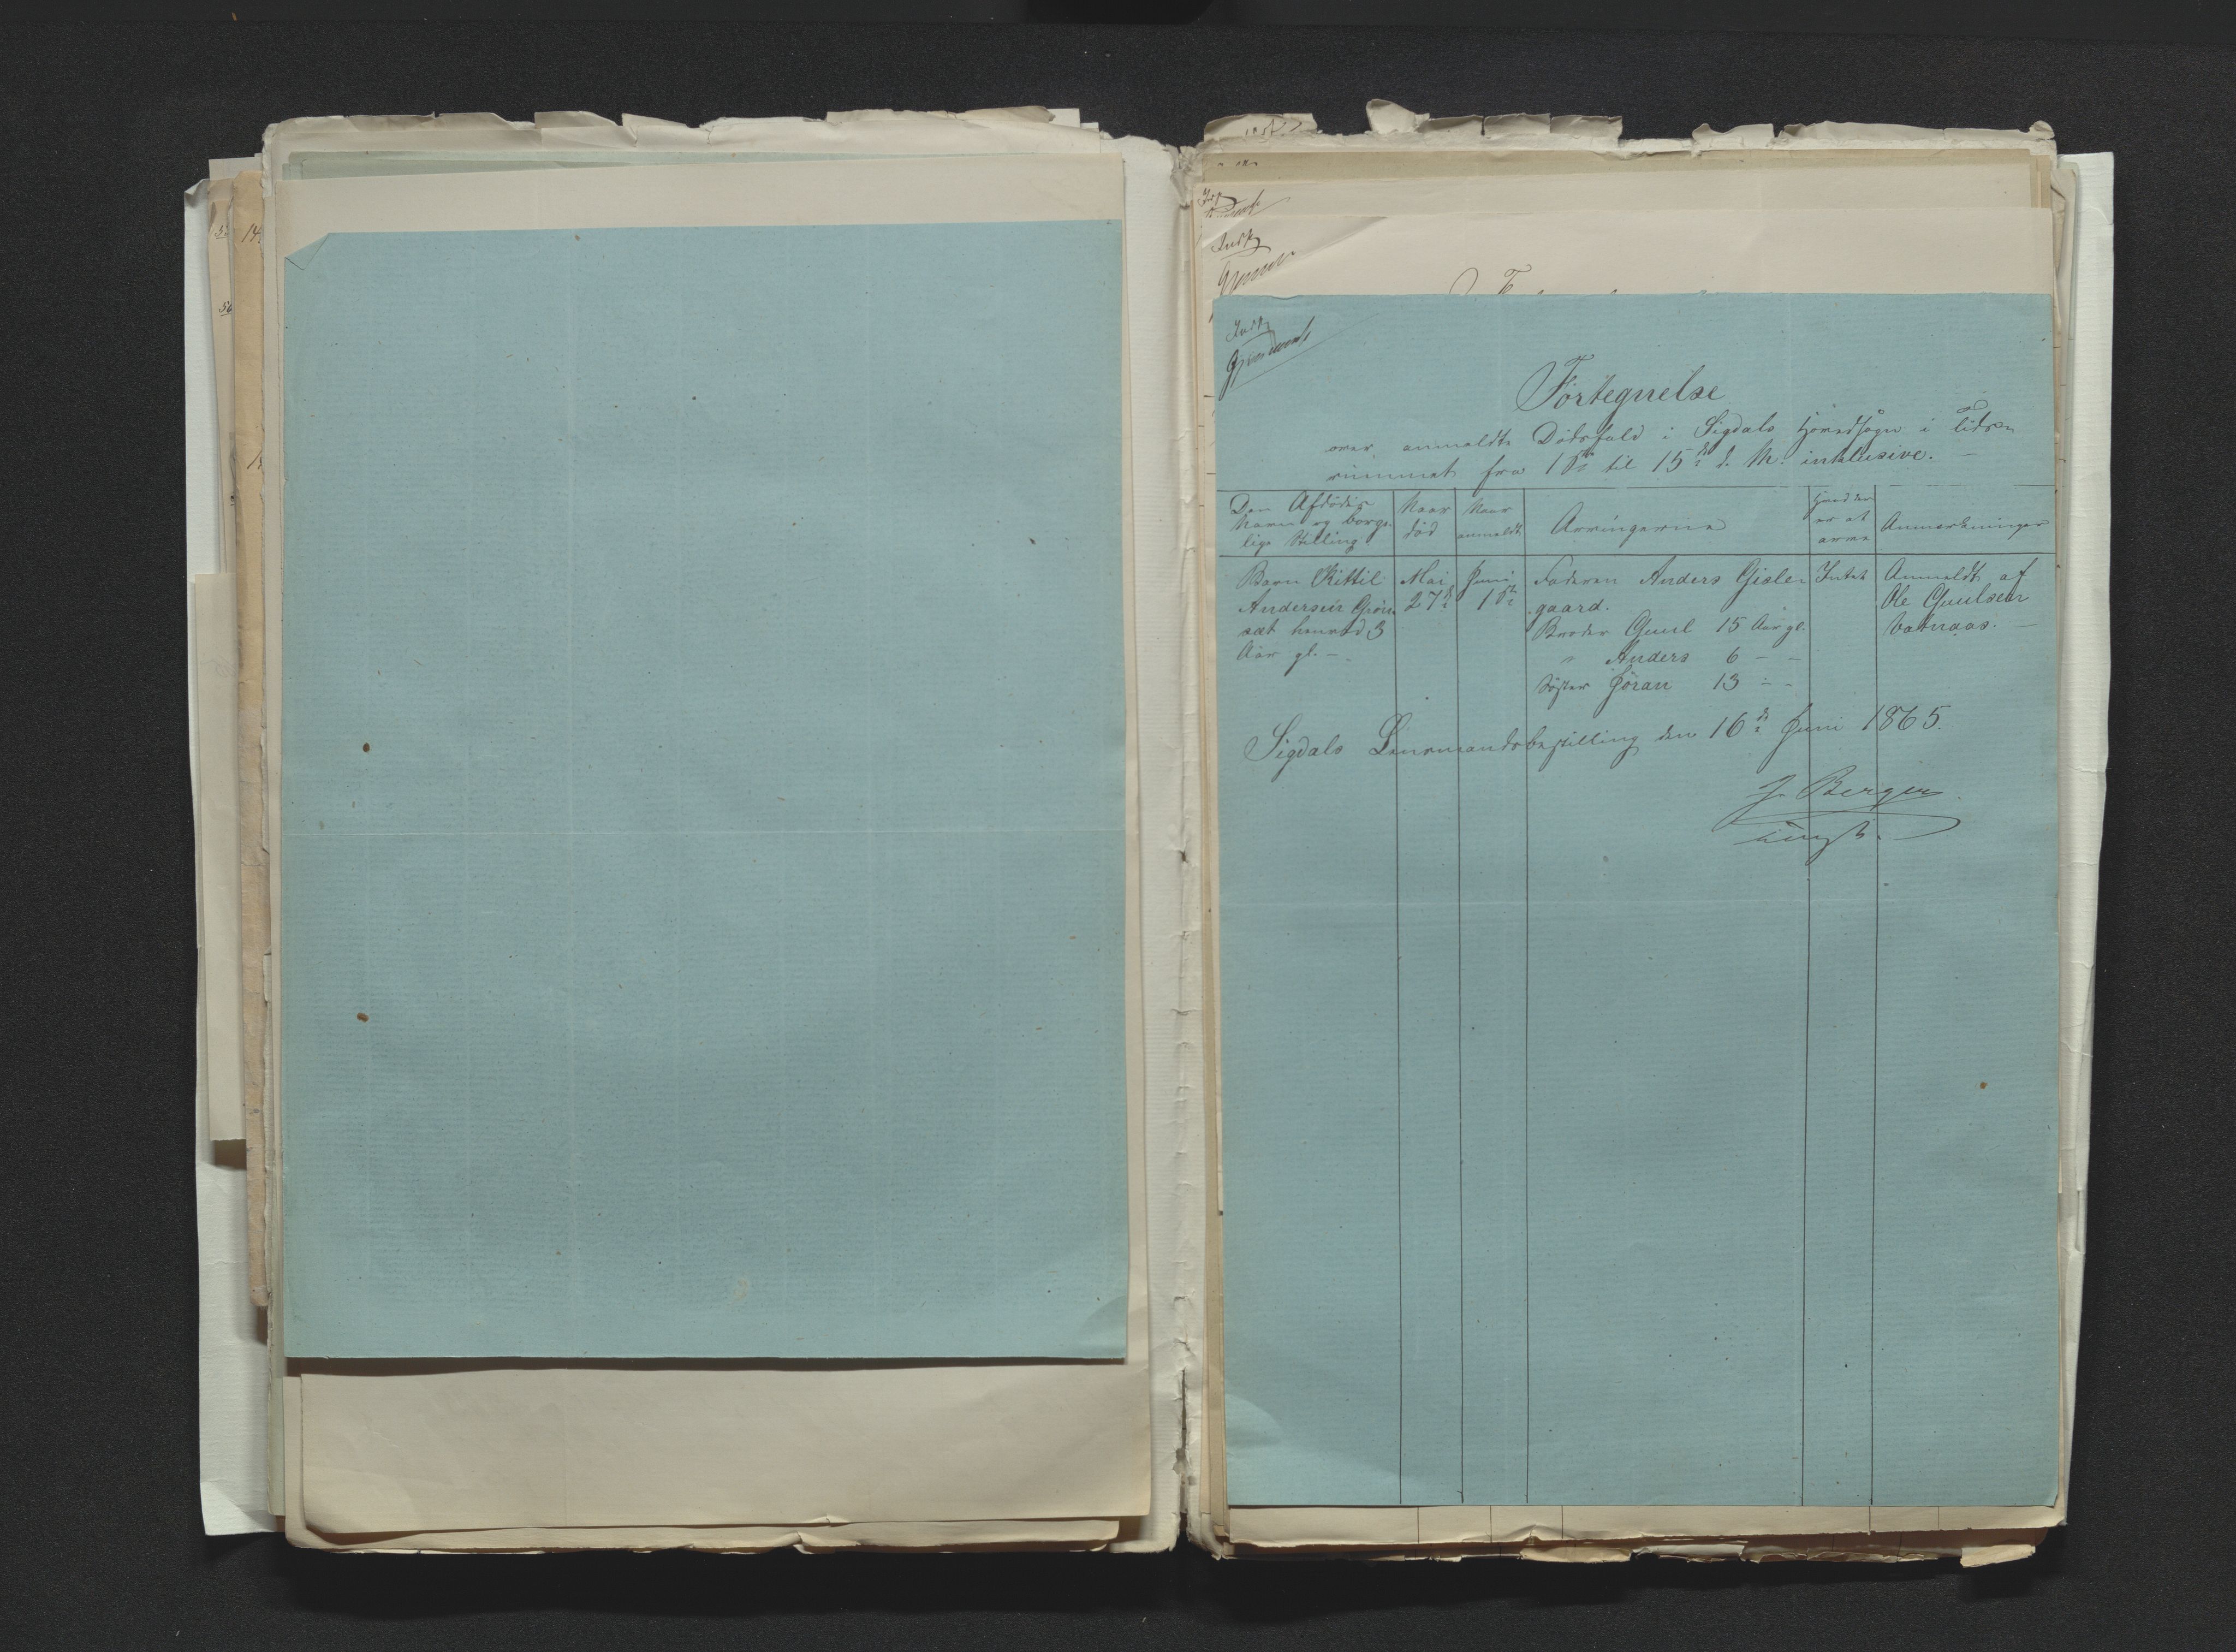 Indf
Fortegnelse
over anmeldte Dødsfald i Sigdals Hovedsogn i Tids-
rummet fra 1ste til 15de d. M. inklusive. -
Den Afdødes
Navn og borger-
lige Stilling
Naar
død
Naar
anmeldt
Arvingerne
Hvad der
er at
arve
Anmærkninger
Barn Kittil
Andersen Grøn-
sæt 3
Aar gl. -
Mai
27de
Juni
1ste
Faderen Anders Gislen-
gaard.
Broder Guul 15 Aar gl.
" Anders 6 - -
Søster Jøran 13 - -
Intet
Anmeldt af
Ole Guulsen
Vatnaas. -
Sigdals Lensmandsbestilling den 16de Juni 1865.
J. Bergen